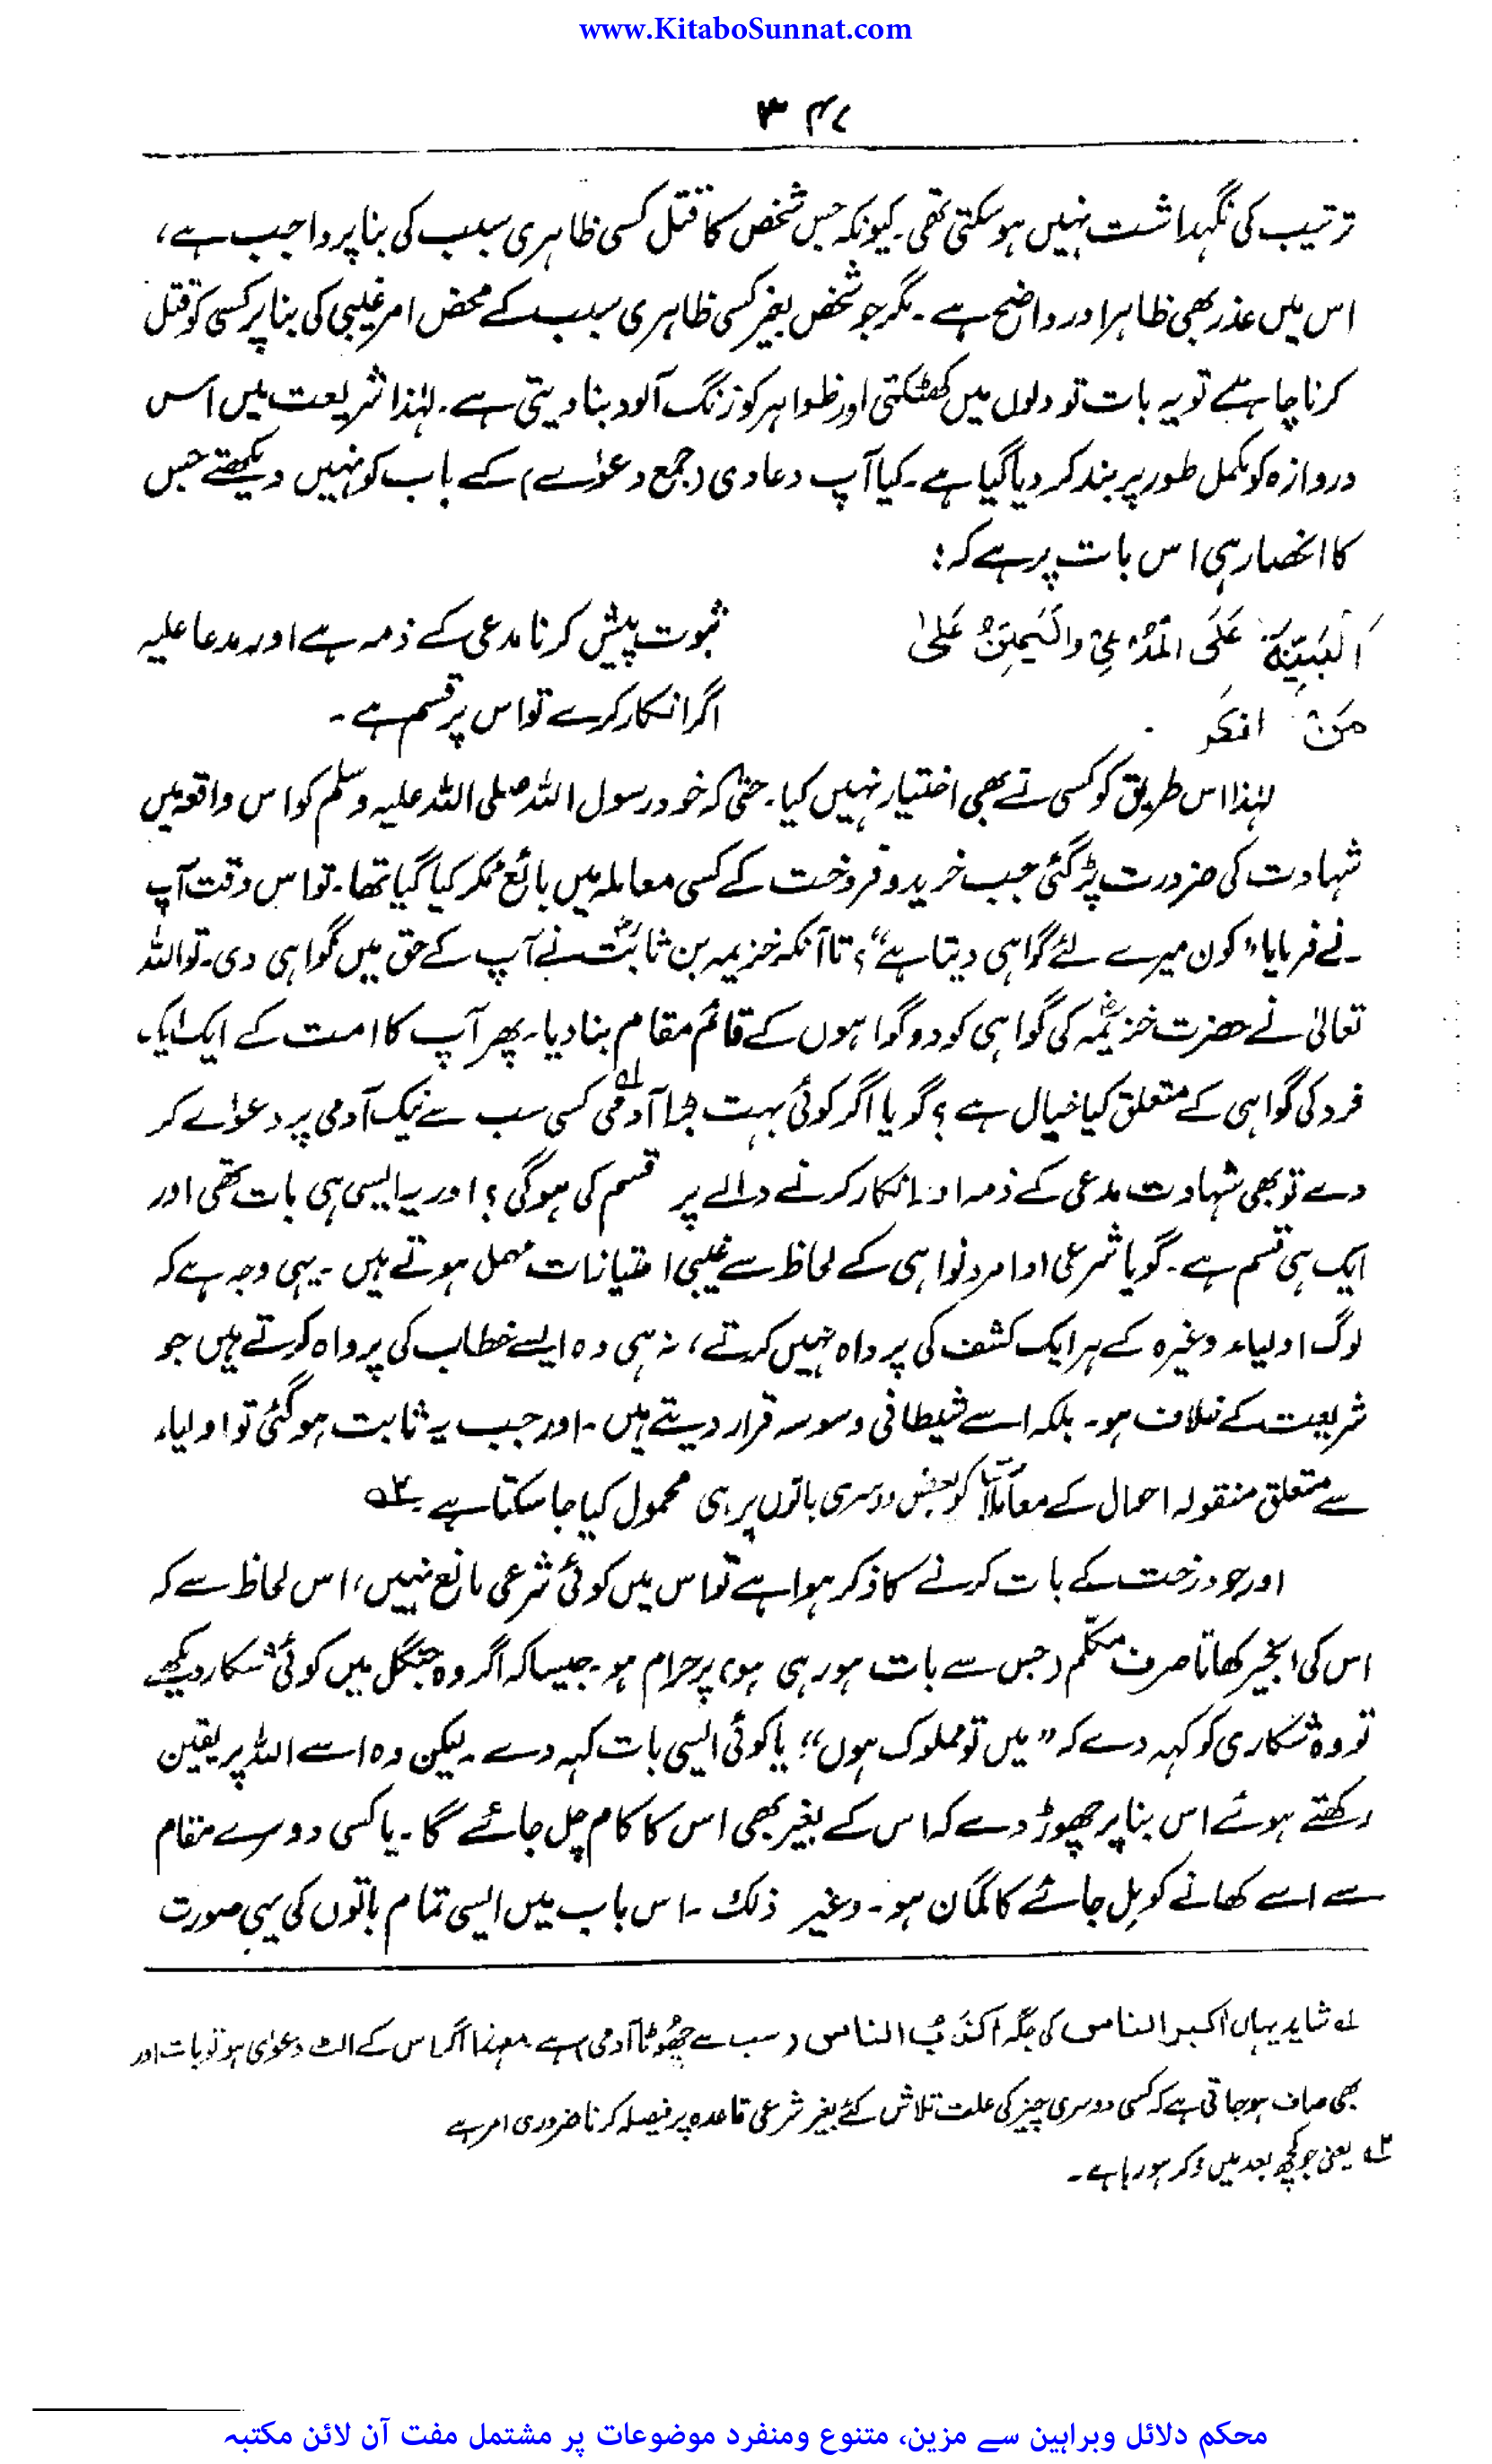 www.KitaboSunnat.com
۳۴۷
ترتیب کی نگہداشت نہیں ہو سکتی تھی۔ کیونکہ جس شخص کا قتل کسی ظاہری سبب کی بنا پر واجب ہے،
اس میں عذر بھی ظاہر اور واضح ہے۔ مگر جو شخص بغیر کسی ظاہری سبب کے محض امر غیبی کی بنا پر کسی کو قتل
کرنا چاہے تو یہ بات تو دلوں میں کھٹکتی اور ظواہر کو زنگ آلود بنا دیتی ہے۔ لہٰذا شریعت میں اس
دروازہ کو مکمل طور پر بند کر دیا گیا ہے۔ کیا آپ دعاوی (جمع دعوٰے) کے باب کو نہیں دیکھتے جس
کا انحصار ہی اس بات پر ہے کہ:
اَلْبَیِّنَةُ عَلَی الْمُدَّعِیْ وَالْیَمِیْنُ عَلیٰ
مَنْ انکر
ثبوت پیش کرنا مدعی کے ذمہ ہے اور مدعا علیہ
اگر انکار کرے تو اس پر قسم ہے۔
لہٰذا اس طریق کو کسی نے بھی اختیار نہیں کیا۔ حتیٰ کہ خود رسول اللہ صلی اللہ علیہ وسلم کو اس واقعہ میں
شہادت کی ضرورت پڑ گئی جب خرید و فروخت کے کسی معاملہ میں بائع مکر کیا گیا تھا۔ تو اس وقت آپ
نے فرمایا "کون میرے لئے گواہی دیتا ہے"؟ تا آنکہ خزیمہ بن ثابتؓ نے آپ کے حق میں گواہی دی۔ تو اللہ
تعالیٰ نے حضرت خزیمہؓ کی گواہی کو دو گواہوں کے قائم مقام بنا دیا۔ پھر آپ کا امت کے ایک ایک
فرد کی گواہی کے متعلق کیا خیال ہے؟ گویا اگر کوئی بہت بڑا آدمی؂۱ کسی سب سے نیک آدمی پر دعوٰے کر
دے تو بھی شہادت مدعی کے ذمہ اور انکار کرنے والے پر قسم کی ہوگی؟ اور یہ ایسی ہی بات تھی اور
ایک ہی قسم ہے۔ گویا شرعی اوامر و نواہی کے لحاظ سے غیبی اعتبارات مہمل ہوتے ہیں۔ یہی وجہ ہے کہ
لوگ اولیاء وغیرہ کے ہر ایک کشف کی پرواہ نہیں کرتے، نہ ہی وہ ایسے خطاب کی پرواہ کرتے ہیں جو
شریعت کے خلاف ہو۔ بلکہ اسے شیطانی وسوسہ قرار دیتے ہیں۔ اور جب یہ ثابت ہو گئی تو اولیاء
سے متعلق منقولہ احوال کے معاملات کو بعض دوسری باتوں پر ہی محمول کیا جا سکتا ہے۔؂۲
اور جو درخت کے بات کرنے کا ذکر ہوا ہے تو اس میں کوئی شرعی مانع نہیں، اس لحاظ سے کہ
اس کی انجیر کھانا صرف متکلم (جس سے بات ہو رہی ہو) پر حرام ہو۔ جیسا کہ اگر وہ جنگل میں کوئی شکار دیکھے
تو وہ شکاری کو کہہ دے کہ "میں تو مملوک ہوں"؛ یا کوئی ایسی بات کہہ دے۔ لیکن وہ اسے اللہ پر یقین
رکھتے ہوئے اس بنا پر چھوڑ دے کہ اس کے بغیر بھی اس کا کام چل جائے گا۔ یا کسی دوسرے مقام
سے اسے کھانے کو مل جائے کا گمان ہو۔ وغیر ذلک۔ اس باب میں ایسی تمام باتوں کی یہی صورت
؂۱ شاید یہاں اکبر الناس کی جگہ اکذب الناس (سب سے جھوٹا آدمی) ہے معہذا اگر اس کے الٹ دعوٰی ہو تو بات اور
بھی صاف ہو جاتی ہے کہ کسی دوسری چیز کی علت تلاش کئے بغیر شرعی قاعدہ پر فیصلہ کرنا ضروری امر ہے
؂۲ یعنی جو کچھ بعد میں ذکر ہو رہا ہے۔
محکم دلائل وبراہین سے مزین، متنوع ومنفرد موضوعات پر مشتمل مفت آن لائن مکتبہ